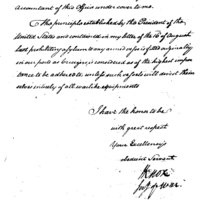 Accountant of this Office under cover to me.
The principle established by the President of the
United States and contained in my letter of the 16 of August
last prohibiting asylum to any armed vessels fitted originally
in our ports as cruizers is considered as of the highest impor
tance to be adhered to, unless such vessels will divest them
selves entirely of all warlike equipments
I have the honor to be
with great respect
Your Excellency's
obedient Servant
H Knox
Secy of War